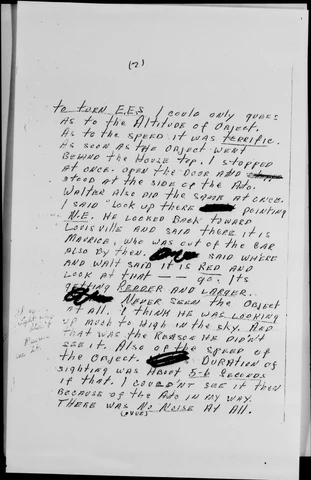 (2)
to turn E.E.S I could only guess
As to the Altitude of Object.
As to the speed it was terrific.
As soon as the Object went
Behind the House top. I stopped
at once. open the Door And
stood at the side of the Auto.
Walter Also did the same at once.
I said "Look up there pointing
N.E. He looked Back toward
Louisville and said there it is
Maurice, who was out of the car
also by then. said where
and Walt said it is Red and
Look at that — go. Its
getting Redder and Larger.
Never seen the Object
at all. I think he was looking
up much to high in the sky. And
that was the Reason he didn't
see it. Also of the speed of
the Object. Duration of
sighting was About 5-6 Seconds
if that. I couldn't see it then
Because of the Auto in my way.
There was No Noise At All.